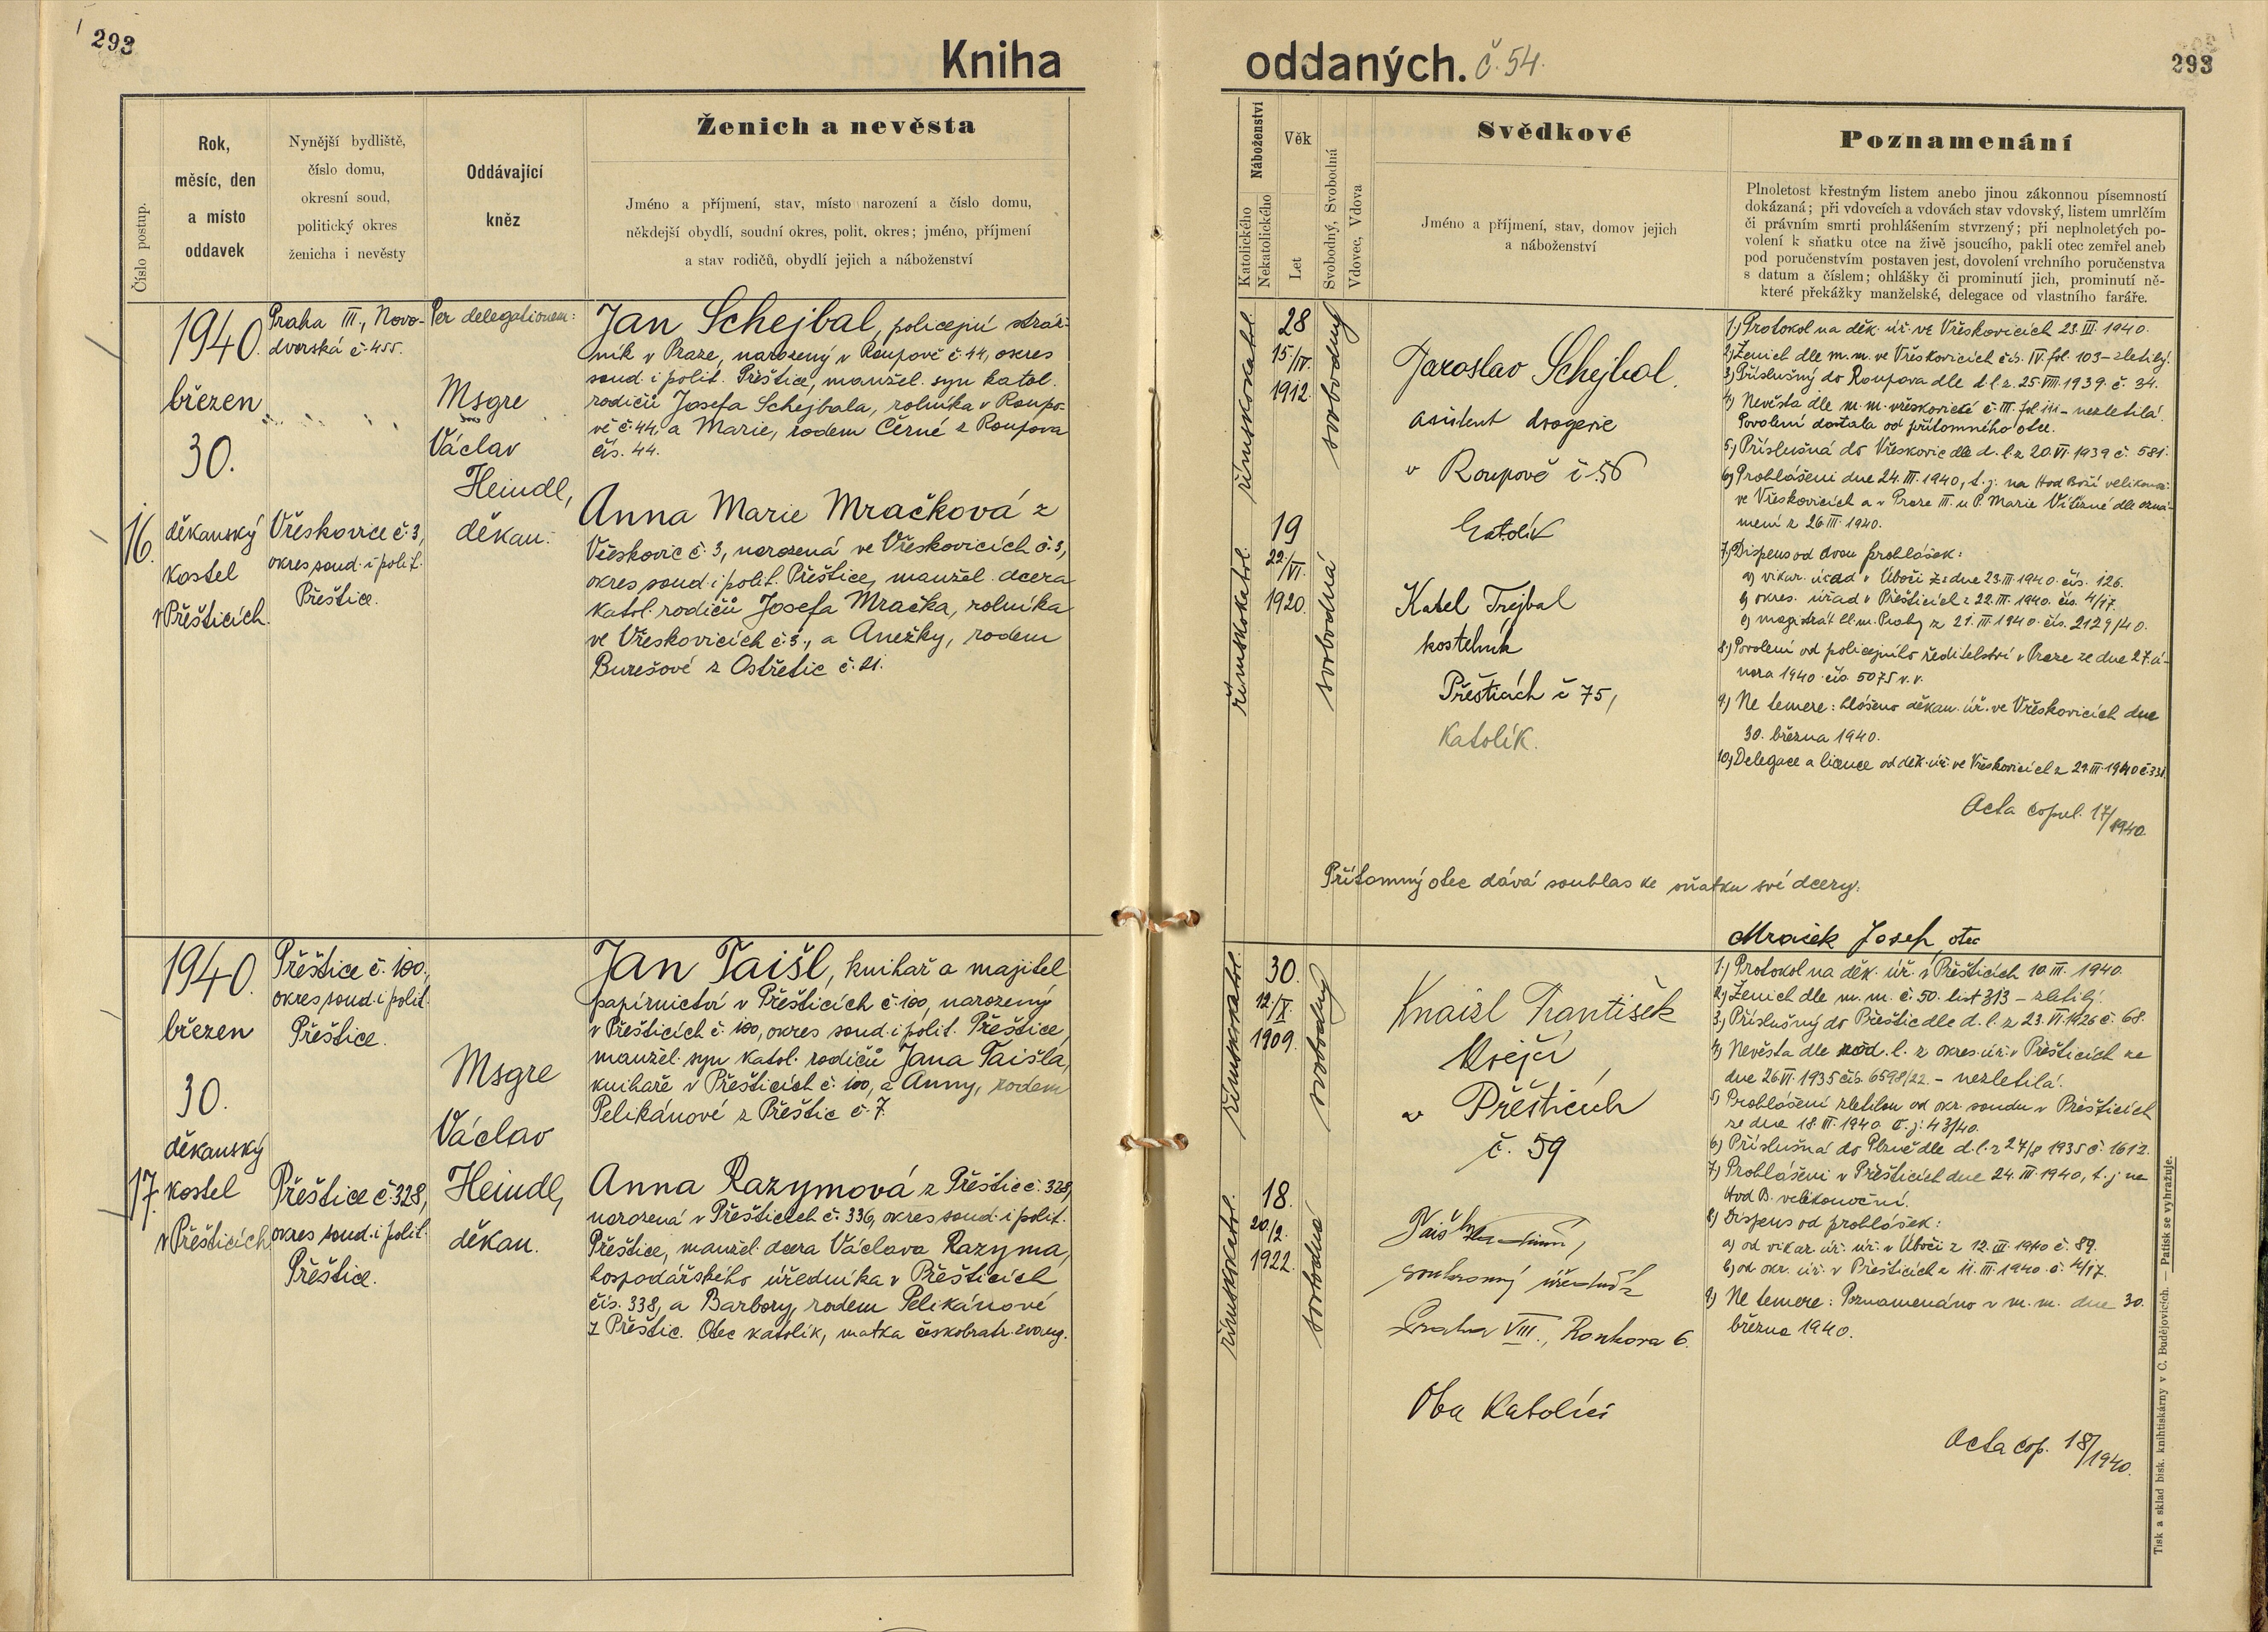 293
Kniha
oddaných. č. 54.
293
Číslo postup.
Rok,
měsíc, den
a místo
oddavek
Nynější bydliště,
číslo domu,
okresní soud,
politický okres
ženicha i nevěsty
Oddávající
kněz
Ženich a nevěsta
Jméno a příjmení, stav, místo narození a číslo domu,
někdejší obydlí, soudní okres, polit. okres; jméno, příjmení
a stav rodičů, obydlí jejich a náboženství
Náboženství
Katolického
Nekatolického
Věk
Let
Svobodný, Svobodná
Vdovec, Vdova
Svědkové
Jméno a příjmení, stav, domov jejich
a náboženství
Poznamenání
Plnoletost křestným listem anebo jinou zákonnou písemností
dokázaná; při vdovcích a vdovách stav vdovský, listem umrlčím
či právním smrti prohlášením stvrzený; při neplnoletých po-
volení k sňatku otce na živě jsoucího, pakli otec zemřel aneb
pod poručenstvím postaven jest, dovolení vrchního poručenstva
s datum a číslem; ohlášky či prominutí jich, prominutí ně-
které překážky manželské, delegace od vlastního faráře.
16.
1940.
březen
30.
děkanský
kostel
v Přešticích.
Praha III., Novo-
dvorská č. 455.
Vřeskovice č. 3,
okres soud. i polit.
Přeštice.
Per delegationem:
Msgre
Václav
Heindl,
děkan.
Jan Schejbal, policejní stráž-
ník v Praze, narozený v Roupově č. 44, okres
soud. i polit. Přeštice, manžel. syn katol.
rodičů Josefa Schejbala, rolníka v Roupo-
vě č. 44, a Marie, rodem Černé z Roupova
čís. 44.
Anna Marie Mračková z
Vřeskovic č. 3, narozená ve Vřeskovicích č. 3,
okres soud. i polit. Přeštice, manžel. dcera
katol. rodičů Josefa Mračka, rolníka
ve Vřeskovicích č. 3., a Anežky, rodem
Burešové z Ostřetic č. 21.
římskokatol.
28
15/IV.
1912.
svobodný
římskokatol.
19
22/VI.
1920.
svobodná
Jaroslav Schejbal.
asistent drogerie
v Roupově č. 56
katolík
Karel Trejbal
kostelník
Přešticích č 75,
Katolík.
1.) Protokol na děk. úř. ve Vřeskovicích 23. III. 1940.
2.) Ženich dle m. m. ve Vřeskovicích čís. IV. fol. 103 – zletilý.
3.) Příslušný do Roupova dle d. l. z. 25. VIII. 1939. č. 34.
4.) Nevěsta dle m. m. vřeskovické č. III. fol. 111 – nezletilá.
Povolení dostala od přítomného otce.
5.) Příslušná do Vřeskovic dle d. l. z 20. VI. 1939 č. 581.
6.) Prohlášeni dne 24. III. 1940, t. j. na Hod Boží velikonoč.
ve Vřeskovicích a v Praze III. u P. Marie Vítězné dle ozná-
mení z 26. III. 1940.
7.) Dispens od dvou prohlášek:
a) vikar. úřad v Úboči ze dne 23. III. 1940. čís. 126.
b) okres. úřad v Přešticích z 22. III. 1940. čís. 4/17.
c) magistrát hl. m. Prahy z 21. III. 1940. čís. 2129/40.
8.) Povolení od policejního ředitelství v Praze ze dne 27. ú-
nora 1940 čís. 5075 v. v.
9.) Ne temere: hlášeno děkan. úř. ve Vřeskovicích dne
30. března 1940.
10.) Delegace a licence od děk. úř. ve Vřeskovicích z 29. III. 1940 č. 331.
Acta copul. 17/1940.
Přítomný otec dává souhlas ke sňatku své dcery.
Mraček Josef, otec
17.
1940.
březen
30.
děkanský
kostel
v Přešticích
Přeštice č. 100,
okres soud. i polit.
Přeštice.
Přeštice č. 328,
okres soud. i polit.
Přeštice.
Msgre
Václav
Heindl,
děkan.
Jan Taišl, knihař a majitel
papírnictví v Přešticích č. 100, narozený
v Přešticích č. 100, okres soud. i polit. Přeštice,
manžel. syn katol. rodičů Jana Taišla,
knihaře v Přešticích č. 100, a Anny, rodem
Pelikánové z Přeštic č. 7.
Anna Razymová z Přeštic č. 328,
narozená v Přešticích č. 336, okres soud. i polit.
Přeštice, manžel. dcera Václava Razyma,
hospodářského úředníka v Přešticích
čís. 338, a Barbory, rodem Pelikánové
z Přeštic. Otec katolík, matka českobratr. evang.
římskokatol.
30.
12/X.
1909.
svobodný
římskokatol.
18.
20./2.
1922.
svobodná
Knaizl František
Krejčí,
v Přešticích
č. 59
soukromý úředník
Praha VIII., Ronkova 6.
Oba Katolíci
1.) Protokol na děk. úř. v Přešticích 10. III. 1940.
2.) Ženich dle m. m. č. 50. list 313 – zletilý.
3.) Příslušný do Přeštic dle d. l. z 23. VI. 1926 č. 68.
4.) Nevěsta dle rod. l. z okres. úř. v Přešticích ze
dne 26. VI. 1935 čís. 6598/22. – nezletilá.
5.) Prohlášení zletilou od okr. soudu v Přešticích
ze dne 18. III. 1940. č. j. 43/40.
6.) Příslušná do Plzně dle d. l. z 27/8 1935 č. 1612.
7.) Prohlášeni v Přešticích dne 24. III. 1940, t. j. na
Hod B. velikonoční.
8.) Dispens od prohlášek:
a) od vikar. úř. v Úboči z 12. III. 1940 č. 89.
b) od okr. úř. v Přešticích z 11. III. 1940. č. 4/17.
9.) Ne temere: Poznamenáno v m. m. dne 30.
března 1940.
Acta cop. 18/1940.
Tisk a sklad bisk. knihtiskárny v Č. Budějovicích. — Patisk se vyhražuje.